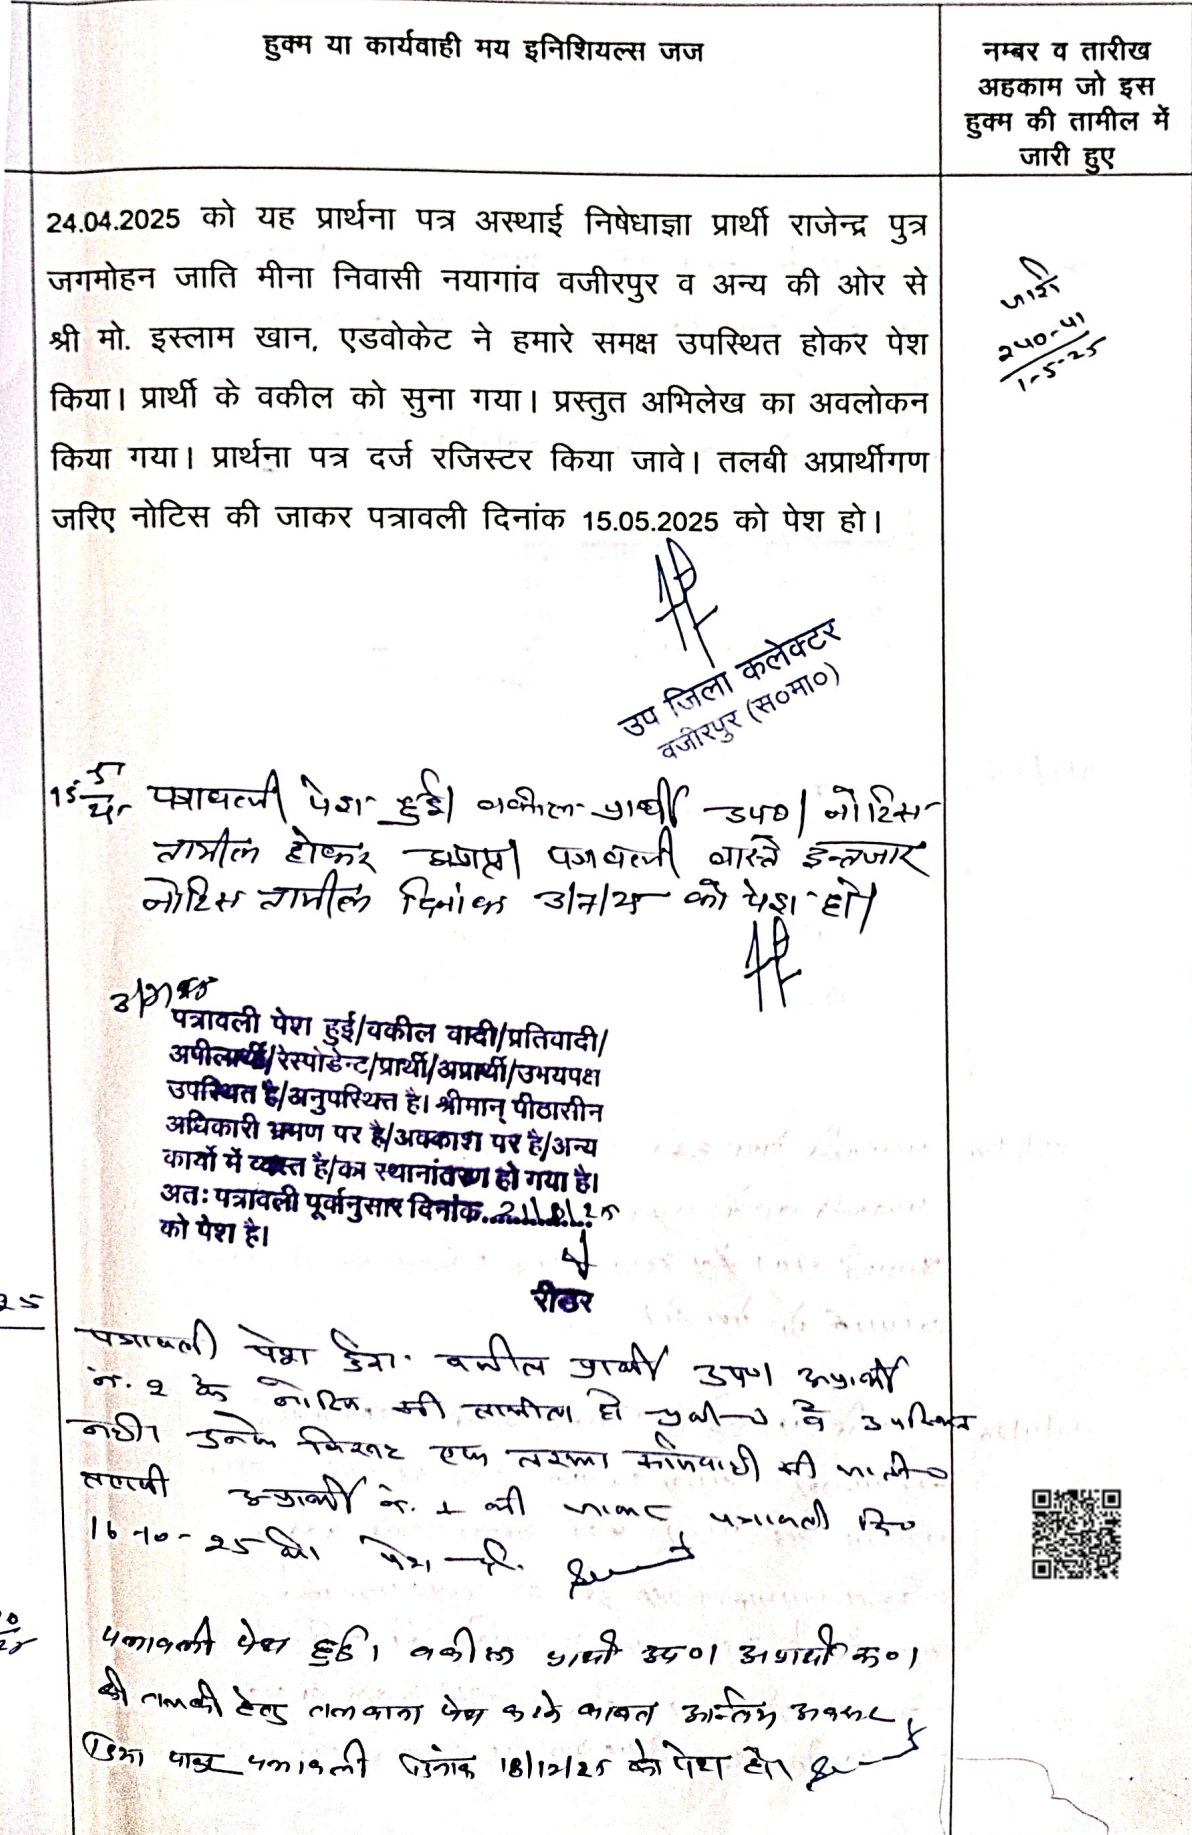 हुक्म या कार्यवाही मय इनिशियल्स जज
नम्बर व तारीख
अहकाम जो इस
हुक्म की तामील में
जारी हुए
24.04.2025 को यह प्रार्थना पत्र अस्थाई निषेधाज्ञा प्रार्थी राजेन्द्र पुत्र
जगमोहन जाति मीना निवासी नयागांव वजीरपुर व अन्य की ओर से
श्री मो. इस्लाम खान, एडवोकेट ने हमारे समक्ष उपस्थित होकर पेश
किया। प्रार्थी के वकील को सुना गया। प्रस्तुत अभिलेख का अवलोकन
किया गया। प्रार्थना पत्र दर्ज रजिस्टर किया जावे। तलबी अप्रार्थीगण
जरिए नोटिस की जाकर पत्रावली दिनांक 15.05.2025 को पेश हो।
जारी
240-41
1-5-25
उप जिला कलेक्टर
वजीरपुर (स०मा०)
15 5
पत्रावली पेश हुई। वकील प्रार्थी उप०। नोटिस
तामील होकर अप्राप्त। पत्रावली वास्ते इन्तजार
नोटिस तामील दिनांक 3/7/25 को पेश हो।
3/7/25
पत्रावली पेश हुई/वकील वादी/प्रतिवादी/
अपीलार्थी/रेस्पोडेन्ट/प्रार्थी/अप्रार्थी/उभयपक्ष
उपस्थित है/अनुपस्थित है। श्रीमान् पीठासीन
अधिकारी भ्रमण पर है/अवकाश पर है/अन्य
कार्यो में व्यस्त है/का स्थानांतरण हो गया है।
अतः पत्रावली पूर्वानुसार दिनांक 21/8/25
को पेश है।
रीडर
25
पत्रावली पेश हुई। वकील प्रार्थी उप०। अप्रार्थी
नं. 2 के नोटिस की तामील हो वे उपस्थित
नहीं। उनके विरूद्ध एक तरफा कार्यवाही की जाती
तलबी अप्रार्थी नं. 1 की जाकर पत्रावली दि०
16-10-25 को पेश हो.
10
25
पत्रावली पेश हुई। वकील प्रार्थी उप०। अप्रार्थी क्र०1
की तलबी हेतु तलवाना पेश करने बाबत अन्तिम अवसर
दिया जाकर पत्रावली दिनांक 18/12/25 को पेश हो।